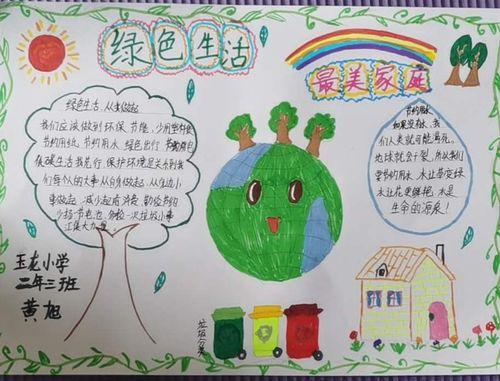 绿色生活
最美家庭
绿色生活,从我做起
我们应该做到环保节能,少用塑料袋
节约用纸,节约用水,绿色出行
低碳生活我先行,保护环境是关系到我
们每个人的大事从自身做起,从生活小
事做起,减少
少扔一节电池,分一次垃圾小事
汇集大力量。
节约用水
如果没有水,我
们人类就可能渴死。
地球就会干裂,所以我们
要节约用水,让草变绿
水让花更鲜艳,水是
生命的源泉!
玉龙小学
二年三班
黄旭
垃圾分类